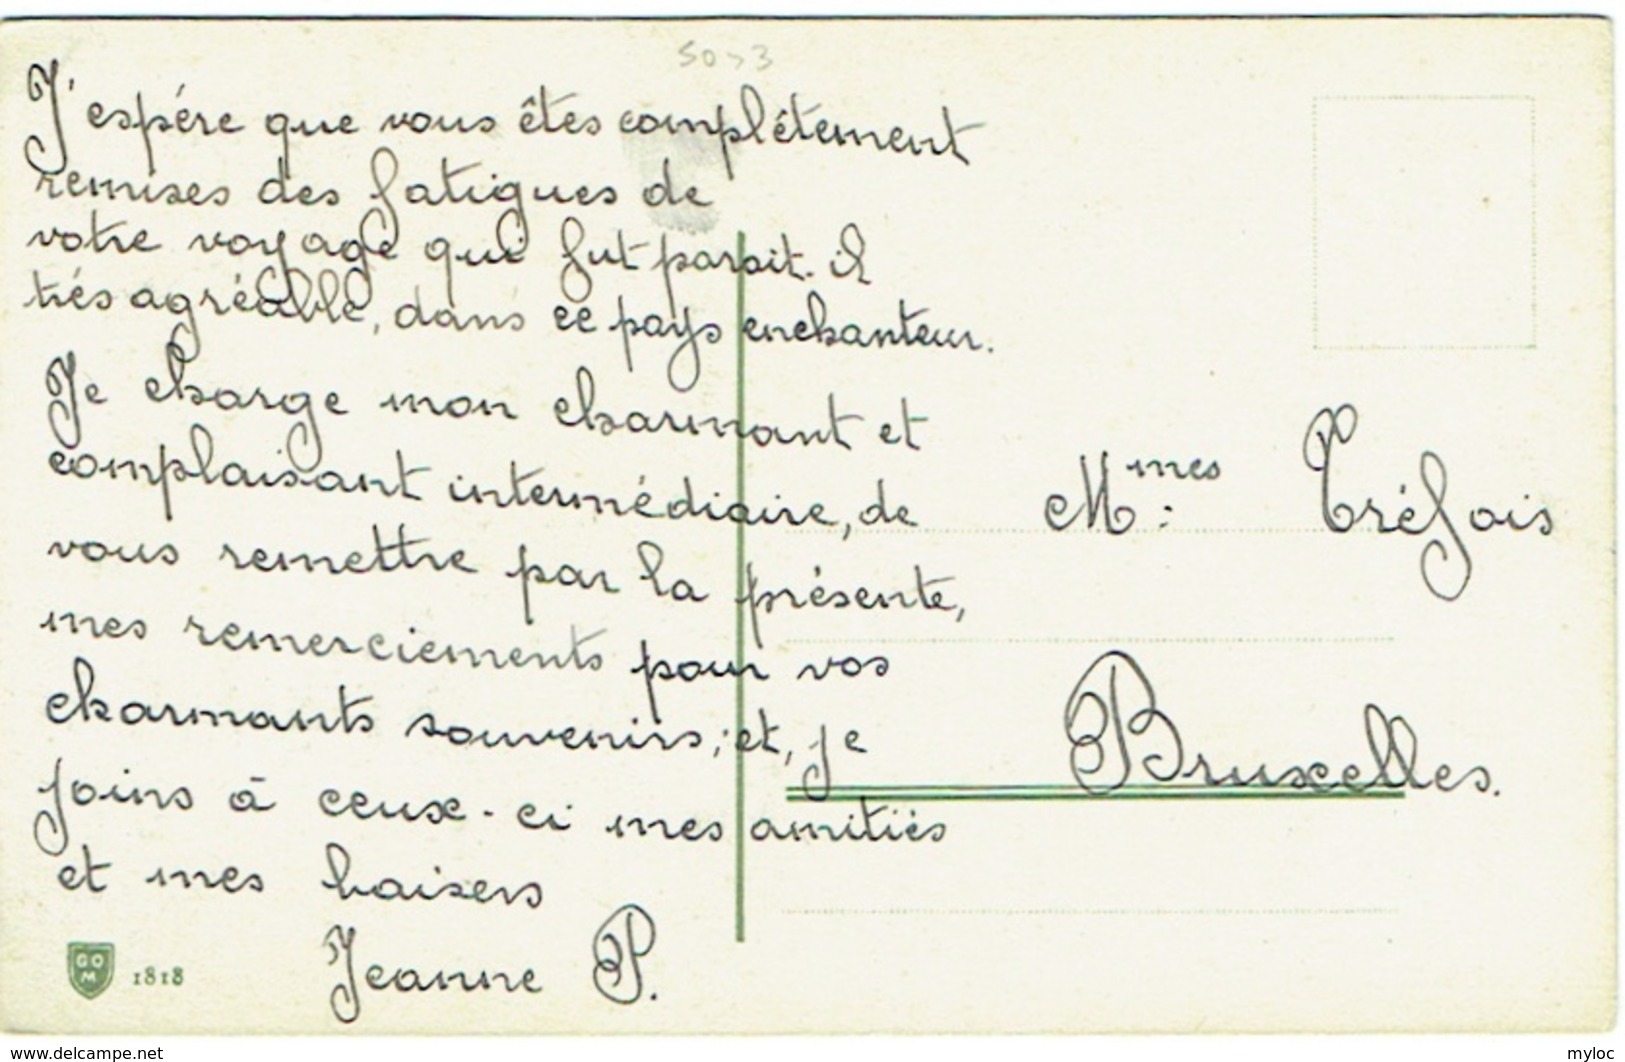 50>3
J'espére que vous êtes complétement
remises des fatigues de
votre voyage qui fut parait-il
trés agréable, dans ce pays enchanteur.
Je charge mon charmant et
complaisant intermédiaire, de
vous remettre par la présente,
mes remerciements pour vos
charmants souvenirs; et, je
joins à ceux-ci mes amitiés
et mes baisers
Jeanne P.
Mmes Tréfois
Bruxelles.
GOM 1818
www.delcampe.net
myloc